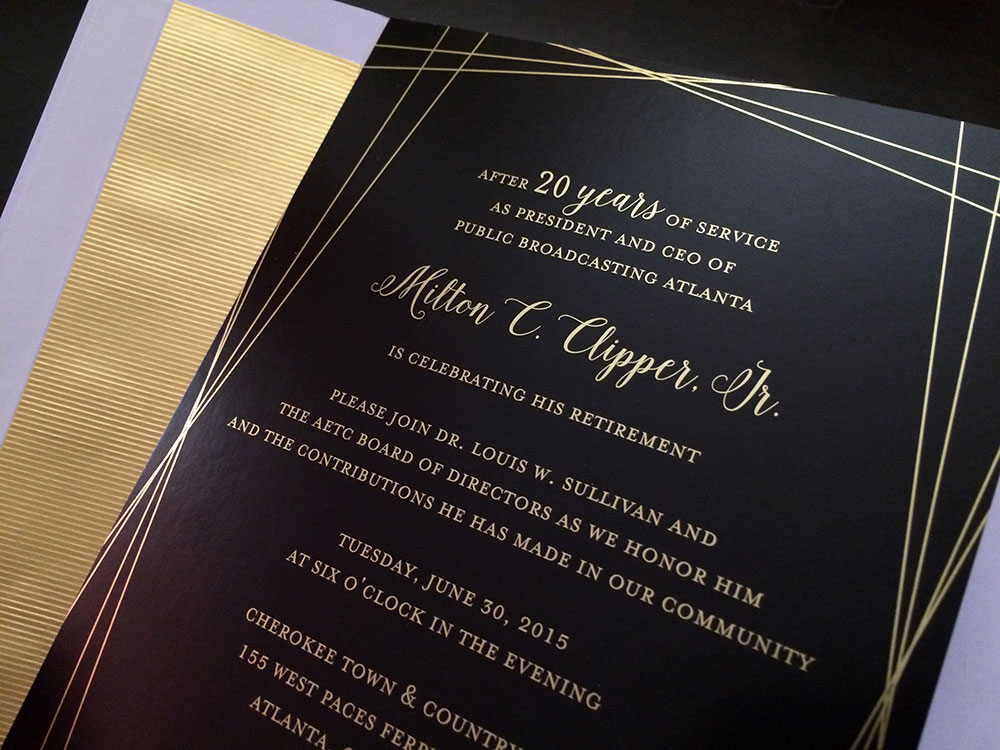 AFTER 20 years OF SERVICE
AS PRESIDENT AND CEO OF
PUBLIC BROADCASTING ATLANTA
Milton C. Clipper, Jr.
IS CELEBRATING HIS RETIREMENT
PLEASE JOIN DR. LOUIS W. SULLIVAN AND
THE AETC BOARD OF DIRECTORS AS WE HONOR HIM
AND THE CONTRIBUTIONS HE HAS MADE IN OUR COMMUNITY
TUESDAY, JUNE 30, 2015
AT SIX O'CLOCK IN THE EVENING
CHEROKEE TOWN & COUNTRY
155 WEST PACES
ATLANTA,